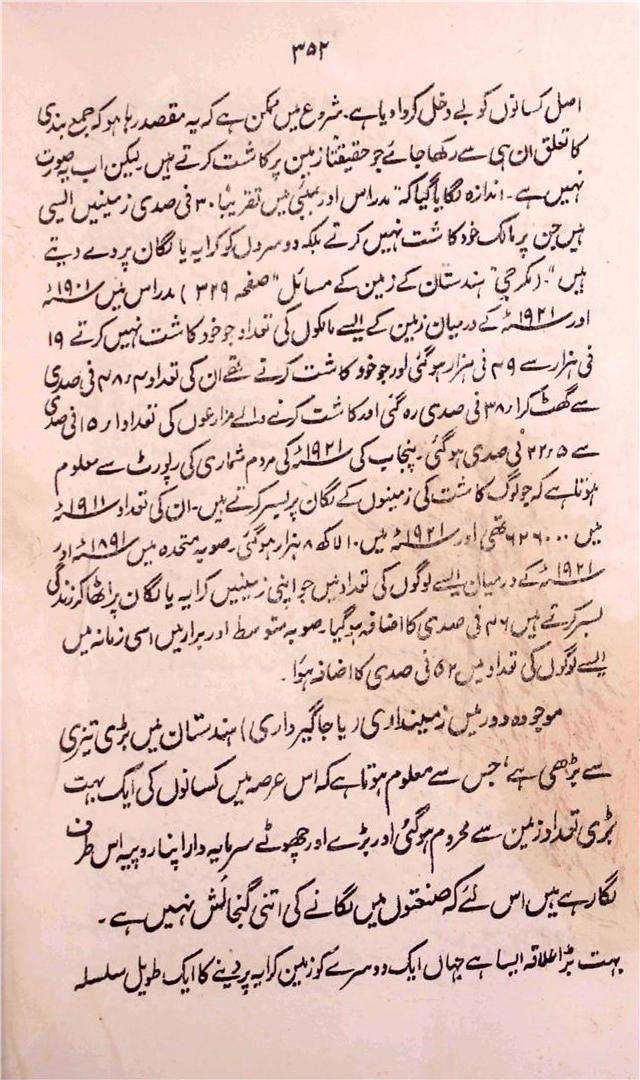 ۳۵۲
اصل کسانوں کو بے دخل کروا دیا ہے۔ شروع میں ممکن ہے کہ یہ مقصد رہا ہو کہ جمع بندی
کا تعلق ان ہی سے رکھا جائے جو حقیقتاً زمین پر کاشت کرتے ہیں۔ لیکن اب یہ صورت
نہیں ہے۔ اندازہ لگایا گیا کہ "مدراس اور بمبئی میں تقریباً ۳۰ فی صدی زمینیں ایسی
ہیں جن پر مالک خود کاشت نہیں کرتے بلکہ دوسروں کو کرایہ یا لگان پر دے دیتے
ہیں"۔ (مکرجی "ہندستان کے زمین کے مسائل" صفحہ ۳۲۹) مدراس میں ۱۹۰۱ء
اور ۱۹۲۱ء کے درمیان زمین کے ایسے مالکوں کی تعداد جو خود کاشت نہیں کرتے ۱۹
فی ہزار سے ۴۹ فی ہزار ہو گئی اور جو خود کاشت کرتے تھے ان کی تعداد ۴۸٫۴ فی صدی
سے گھٹ کر ۳۸٫۱ فی صدی رہ گئی اور کاشت کرنے والے مزارعوں کی تعداد ۱۵٫۱ فی صدی
سے ۲۲٫۵ فی صدی ہو گئی۔ پنجاب کی ۱۹۲۱ء کی مردم شماری کی رپورٹ سے معلوم
ہوتا ہے کہ جو لوگ کاشت کی زمینوں کے لگان پر بسر کرتے ہیں۔ ان کی تعداد ۱۹۱۱ء
میں ۶۲۶۰۰۰ تھی اور ۱۹۲۱ء میں ۱۰ لاکھ ۸ ہزار ہو گئی۔ صوبہ متحدہ میں ۱۸۹۱ء اور
۱۹۲۱ء کے درمیان ایسے لوگوں کی تعداد میں جو اپنی زمینیں کرایہ یا لگان پر اٹھا کر زندگی
بسر کرتے ہیں ۴۶ فی صدی کا اضافہ ہو گیا۔ صوبہ متوسط اور برار میں اسی زمانہ میں
ایسے لوگوں کی تعداد میں ۵۲ فی صدی کا اضافہ ہوا۔
موجودہ دور میں زمینداری (یا جاگیرداری) ہندستان میں بڑی تیزی
سے بڑھی ہے، جس سے معلوم ہوتا ہے کہ اس عرصہ میں کسانوں کی ایک بہت
بڑی تعداد زمین سے محروم ہو گئی اور بڑے اور چھوٹے سرمایہ دار اپنا روپیہ اس طرف
لگا رہے ہیں اس لئے کہ صنعتوں میں لگانے کی اتنی گنجائش نہیں ہے۔
بہت بڑا علاقہ ایسا ہے جہاں ایک دوسرے کو زمین کرایہ پر دینے کا ایک طویل سلسلہ